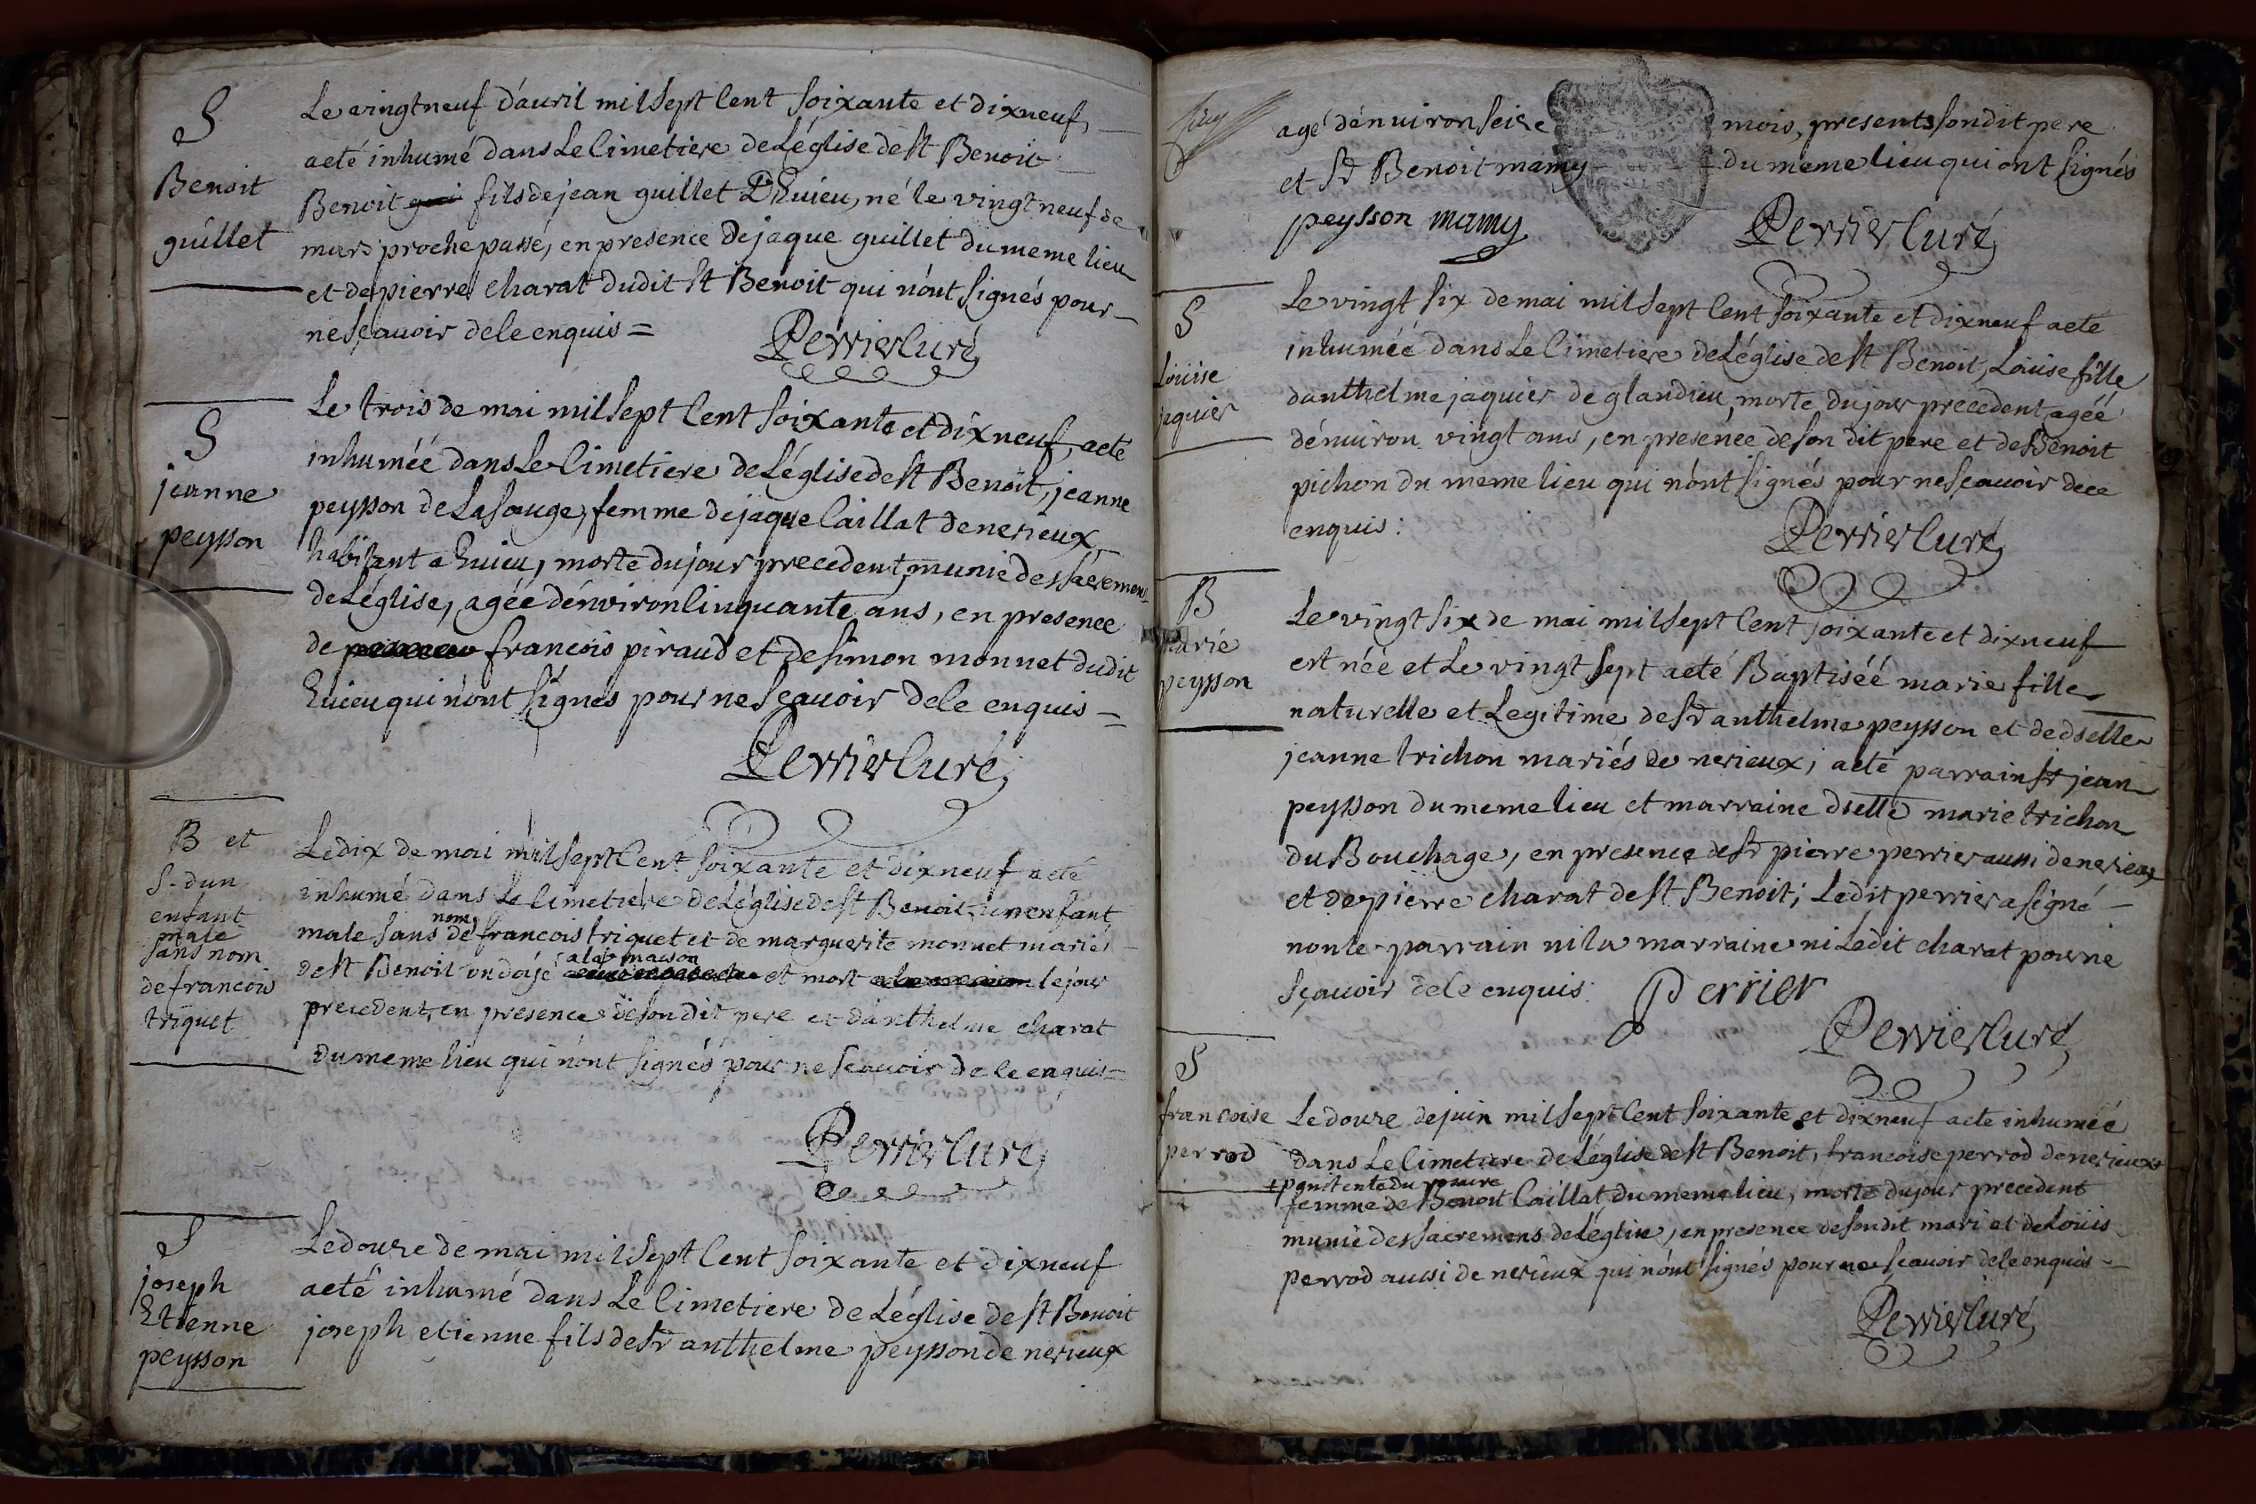 S
Benoit
guillet
Le vingtneuf d'avril mil Sept Cent Soixante et dixneuf,
a eté inhumé dans Le Cimetiere de Léglise de St Benoit
Benoit gui fils de jean guillet D'huieu, né le vingt neuf de
mars proche passé, en presence de jaque guillet du meme lieu
et de pierre charat dudit St Benoit qui n'ont Signés pour
ne sçavoir de Ce enquis =
Perrier Curé
S
jeanne
peysson
Le trois de mai mil Sept Cent Soixante et dixneuf, a eté
inhumée dans Le Cimetiere de Léglise de St Benoit, jeanne
peysson de La sauge, femme de jaque Caillat de nerieux
habitant a huieu, morte du jour precedent, munie des sacremens
de Léglise, agée dénviron Cinquante ans, en presence
de francois piraud et de simon monnet dudit
huieu qui n'ont Signés pour ne Sçavoir de Ce enquis =
Perrier Curé
B et
S. dun
enfant
male
sans nom
de francois
triquet
Le dix de mai mil Sept Cent Soixante et dixneuf a eté
inhumé dans Le Cimetiere de Léglise de St Benoit, un enfant
male Sans nom de francois triquet et de marguerite monnet mariés
de St Benoit ondoyé a la maison et mort le jour
precedent, en presence de son dit pere et d'anthelme charat
du meme lieu qui n'ont Signés pour ne Scavoir de Ce enquis =
Perrier Curé
S
joseph
Etienne
peysson
Le douze de mai mil Sept Cent Soixante et dixneuf
a eté inhumé dans Le Cimetiere de Léglise de St Benoit
joseph etienne fils de Sr anthelme peysson de nerieux
agé dénviron seize mois, présents son dit pere
et Sr Benoit mamy du meme lieu qui ont Signés
peysson mamy
Perrier Curé
S
Louise
jaquier
Le vingt Six de mai mil Sept Cent Soixante et dixneuf a eté
inhumée dans Le Cimetiere de Léglise de St Benoit, Louise fille
danthelme jaquier de glandieu, morte du jour precedent, agée
dénviron vingt ans, en presence de son dit pere et de Benoit
pichon du meme lieu qui n'ont Signés pour ne sçavoir de ce
enquis :
Perrier Curé
B
marie
peysson
Le vingt Six de mai mil Sept Cent Soixante et dixneuf
est née et Le vingt Sept a eté Baptisée marie fille
naturelle et Legitime de Sr anthelme peysson et de dselle
jeanne trichon mariés de nerieux, a eté parrain Sr jean
peysson du meme lieu et marraine dselle marie trichon
du Bouchage, en presence de Sr pierre perrier aussi de nerieux
et de pierre charat de St Benoit; Ledit perrier a signé
non le parrain ni la marraine ni Ledit charat pour ne
sçavoir de Ce enquis.
Perrier
Perrier Curé
S
francoise
perrod
Le douze de juin mil Sept Cent Soixante et dixneuf a eté inhumée
dans Le Cimetiere de Léglise de St Benoit, francoise perrod de nerieux +
+ penitente du rosaire
femme de Benoit Caillat du meme lieu, morte du jour precedent
munie des sacremens de Léglise, en presence de son dit mari et de Loüis
perrod aussi de nerieux qui n'ont Signés pour ne Scavoir de Ce enquis
Perrier Curé